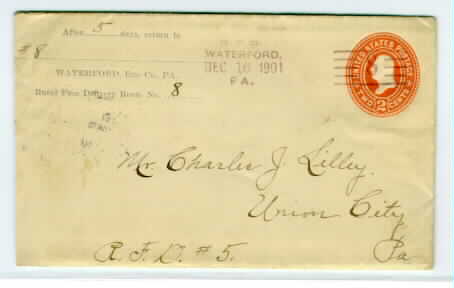 After 5 days, return to
#8
WATERFORD, Erie Co., PA.
Rural Free Delivery Route No. 8
R.F.D.
WATERFORD,
DEC 16 1901
PA.
UNITED STATES POSTAGE
2
Mr. Charles J. Lilley.
Union City
Pa
R.F.D. #5.